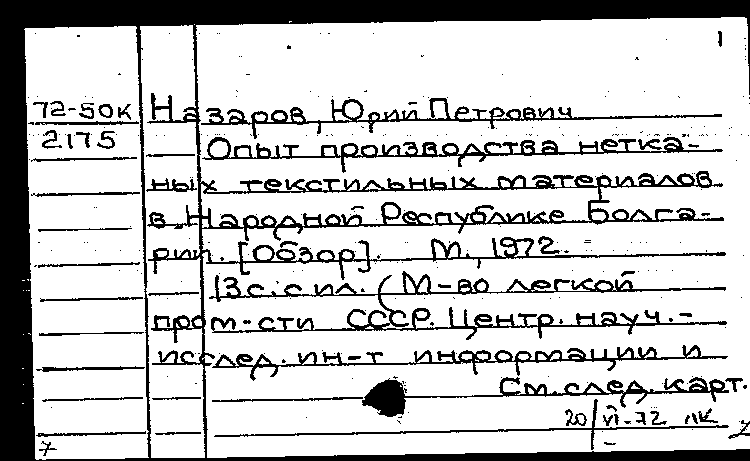 1
72-50к Назаров, Юрий Петрович
2175 Опыт производства нетка-
ных текстильных материалов
в Народной Республике Болга-
рии. [Обзор]. М., 1972.
13 с. с ил. (М-во легкой
пром-сти СССР. Центр. науч.-
исслед. ин-т информации и
См. след. карт.
20/VI-72 ЛК
7